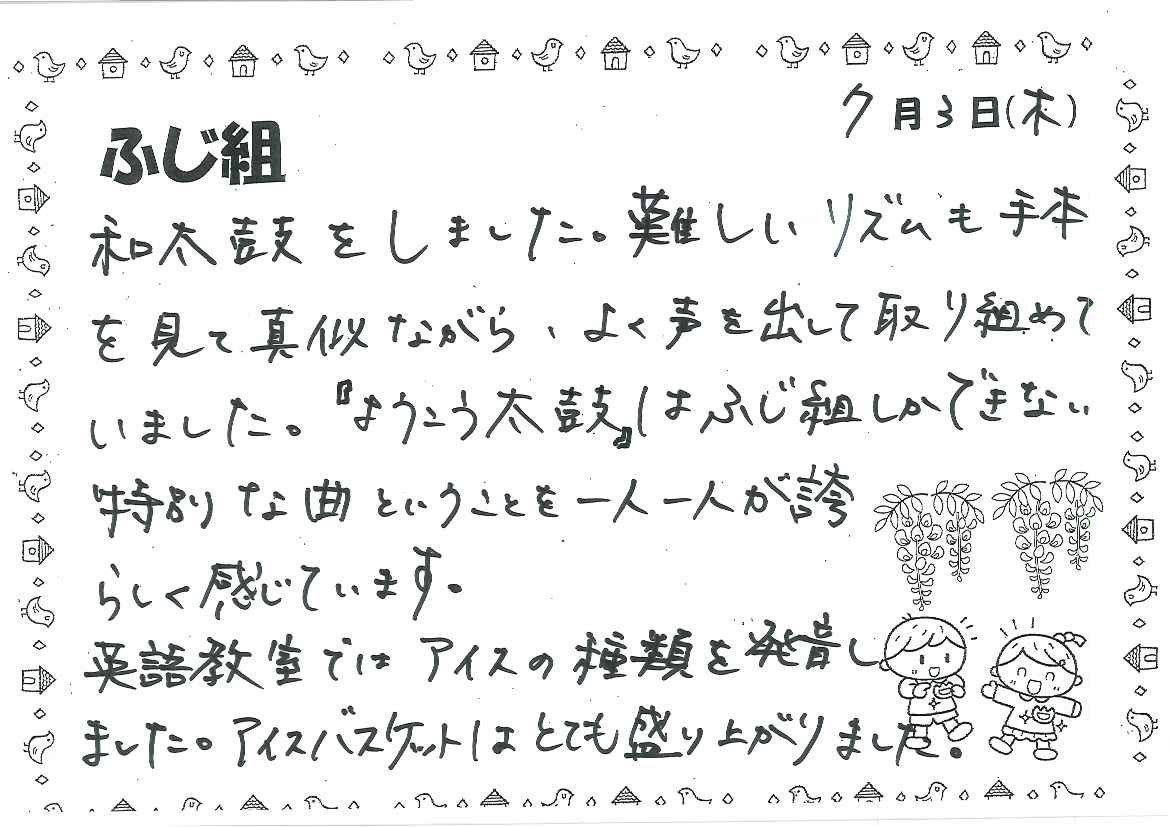 7月3日(木)
ふじ組
和太鼓をしました。難しいリズムも手本
を見て真似ながら、よく声を出して取り組めて
いました。『ようこう太鼓』はふじ組しかできない
特別な曲ということを一人一人が誇
らしく感じています。
英語教室ではアイスの種類を発音し
ました。アイスバスケットはとても盛り上がりました。